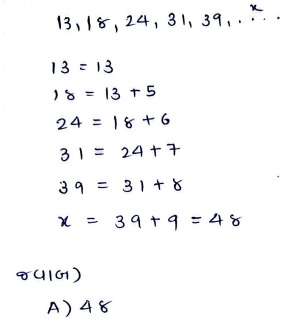 x
13, 18, 24, 31, 39, . . . .
13 = 13
18 = 13 + 5
24 = 18 + 6
31 = 24 + 7
39 = 31 + 8
x = 39 + 9 = 48
જવાબ)
A) 48